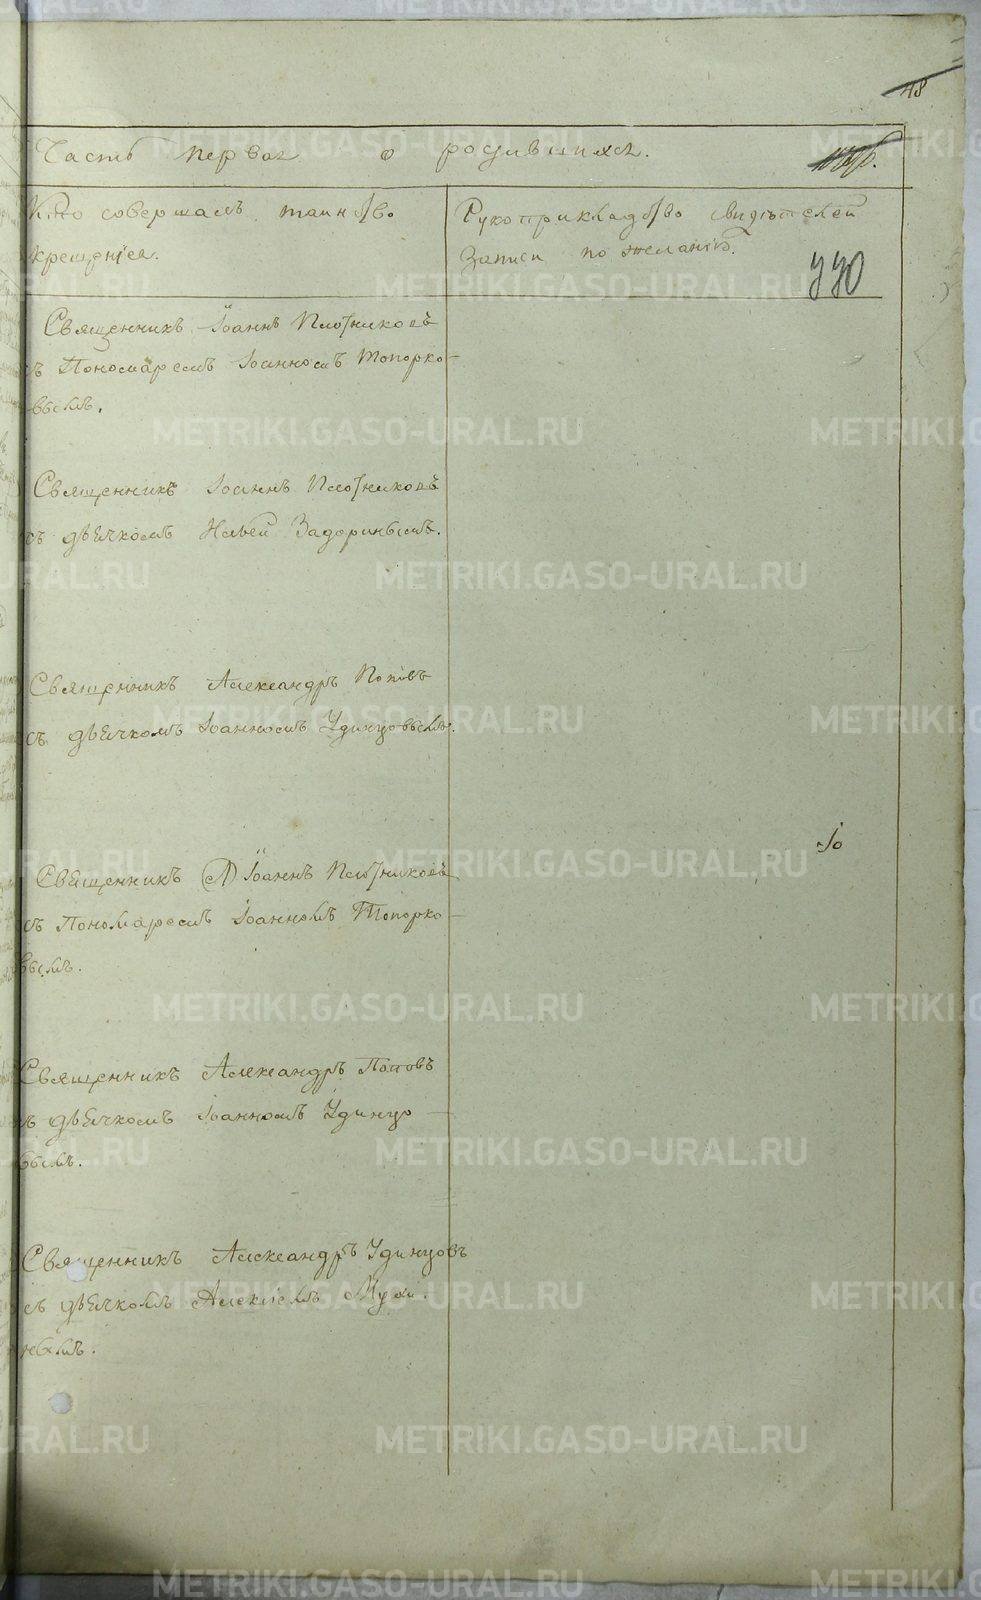 48
Часть первая о родившихся.
Кто совершалъ таинство
крещенія.
Рукоприкладство свидѣтелей
записи по желанію.
770
Священникъ Іоаннъ Плотниковъ
съ Пономаремъ Іоанномъ Топорко-
вымъ.
Священникъ Іоаннъ Плотниковъ
съ дьячкомъ Ильей Задоринымъ.
Священникъ Александръ Поповъ
съ дьячкомъ Іоанномъ Удинцовымъ.
Священникъ Іоаннъ Плотниковъ
съ Пономаремъ Іоанномъ Топорко-
вымъ.
Священникъ Александръ Поповъ
съ дьячкомъ Іоанномъ Удинцо-
вымъ.
Священникъ Александръ Удинцовъ
съ дьячкомъ Алексіемъ Мухи-
нымъ.
METRIKI.GASO-URAL.RU